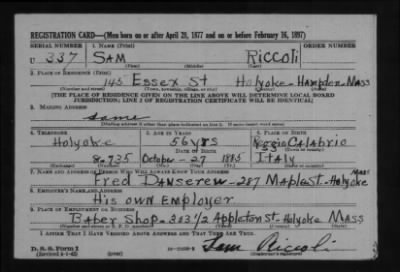 REGISTRATION CARD—(Men born on or after April 28, 1877 and on or before February 16, 1897)
SERIAL NUMBER 1. NAME (Print) ORDER NUMBER
U 337 SAM Riccoli
(First) (Middle) (Last)
2. PLACE OF RESIDENCE (Print)
145 Essex St Holyoke - Hampden - Mass
(Number and street) (Town, township, village, or city) (County) (State)
[THE PLACE OF RESIDENCE GIVEN ON THE LINE ABOVE WILL DETERMINE LOCAL BOARD
JURISDICTION; LINE 2 OF REGISTRATION CERTIFICATE WILL BE IDENTICAL]
3. MAILING ADDRESS
same
[Mailing address if other than place indicated on line 2. If same insert word same]
4. TELEPHONE 5. AGE IN YEARS 6. PLACE OF BIRTH
Holyoke 56 yrs Reggio Calabrio
DATE OF BIRTH
8-735 October - 27 1885 Italy
7. NAME AND ADDRESS OF PERSON WHO WILL ALWAYS KNOW YOUR ADDRESS
Fred Danserew - 287 Maple St - Holyoke Mass
8. EMPLOYER'S NAME AND ADDRESS
His own Employer
9. PLACE OF EMPLOYMENT OR BUSINESS
Baber Shop - 383 1/2 Appleton St - Holyoke Mass
I AFFIRM THAT I HAVE VERIFIED ABOVE ANSWERS AND THAT THEY ARE TRUE.
D. S. S. Form 1
Sam Riccoli